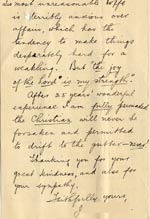 his most unreasonable wife
is terribly anxious over
affairs, which has the
tendency to make things
desperately hard for a
weakling. But "the joy
of the Lord is my strength."
After 25 years' wonderful
experience I am fully
the Christian will never be
forsaken and permitted
to drift to the gutter—
Thanking you for your
great kindness, and also for
your sympathy.
Faithfully yours,